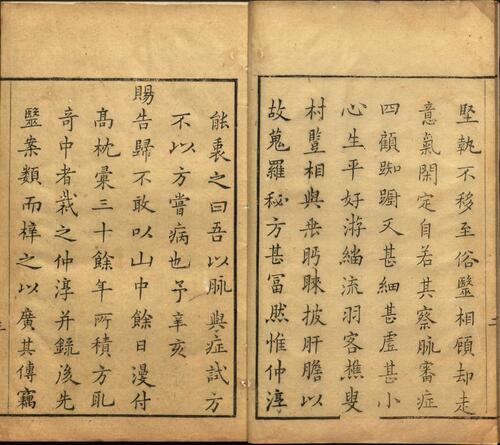 堅執不移至俗醫相顧却走
意氣閑定自若其察脉審症
四顧踟蹰又甚細甚虛甚小
心生平好游緇流羽客樵叟
村豎相與垂眄睞披肝膽以
故蒐羅秘方甚冨然惟仲淳
能衷之曰吾以脉與症試方
不以方嘗病也予辛亥
賜告歸不敢以山中餘日漫付
高枕彙三十餘年所積方取
奇中者裁之仲淳并錄後先
醫案類而梓之以廣其傳竊